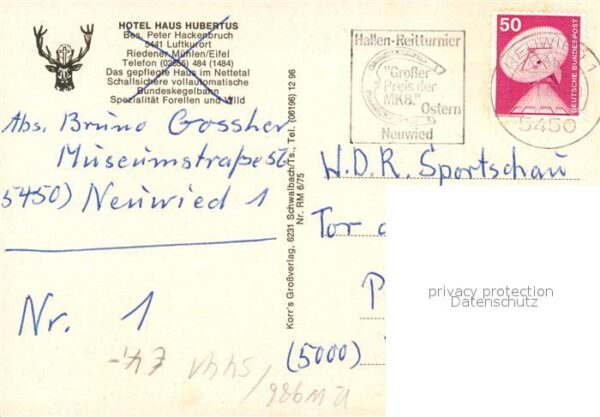 HOTEL HAUS HUBERTUS
Bes. Peter Hackenbruch
5441 Luftkurort
Riedener Mühlen/Eifel
Telefon (02655) 484 (1484)
Das gepflegte Haus im Nettetal
Schallsichere vollautomatische
Bundeskegelbahn
Spezialität Forellen und Wild
Abs. Bruno Gossher
Museumstraße 56
5450) Neuwied 1
Nr. 1
Korr's Großverlag, 6231 Schwalbach/Ts., Tel. (06196) 12 96
Nr. RM 6/75
Hallen-Reitturnier
"Großer
Preis der
MKB."
Ostern
Neuwied
50
DEUTSCHE BUNDESPOST
NEUWIED 1
5450
W.D.R. Sportschau
Tor
P
(5000)
privacy protection
Datenschutz